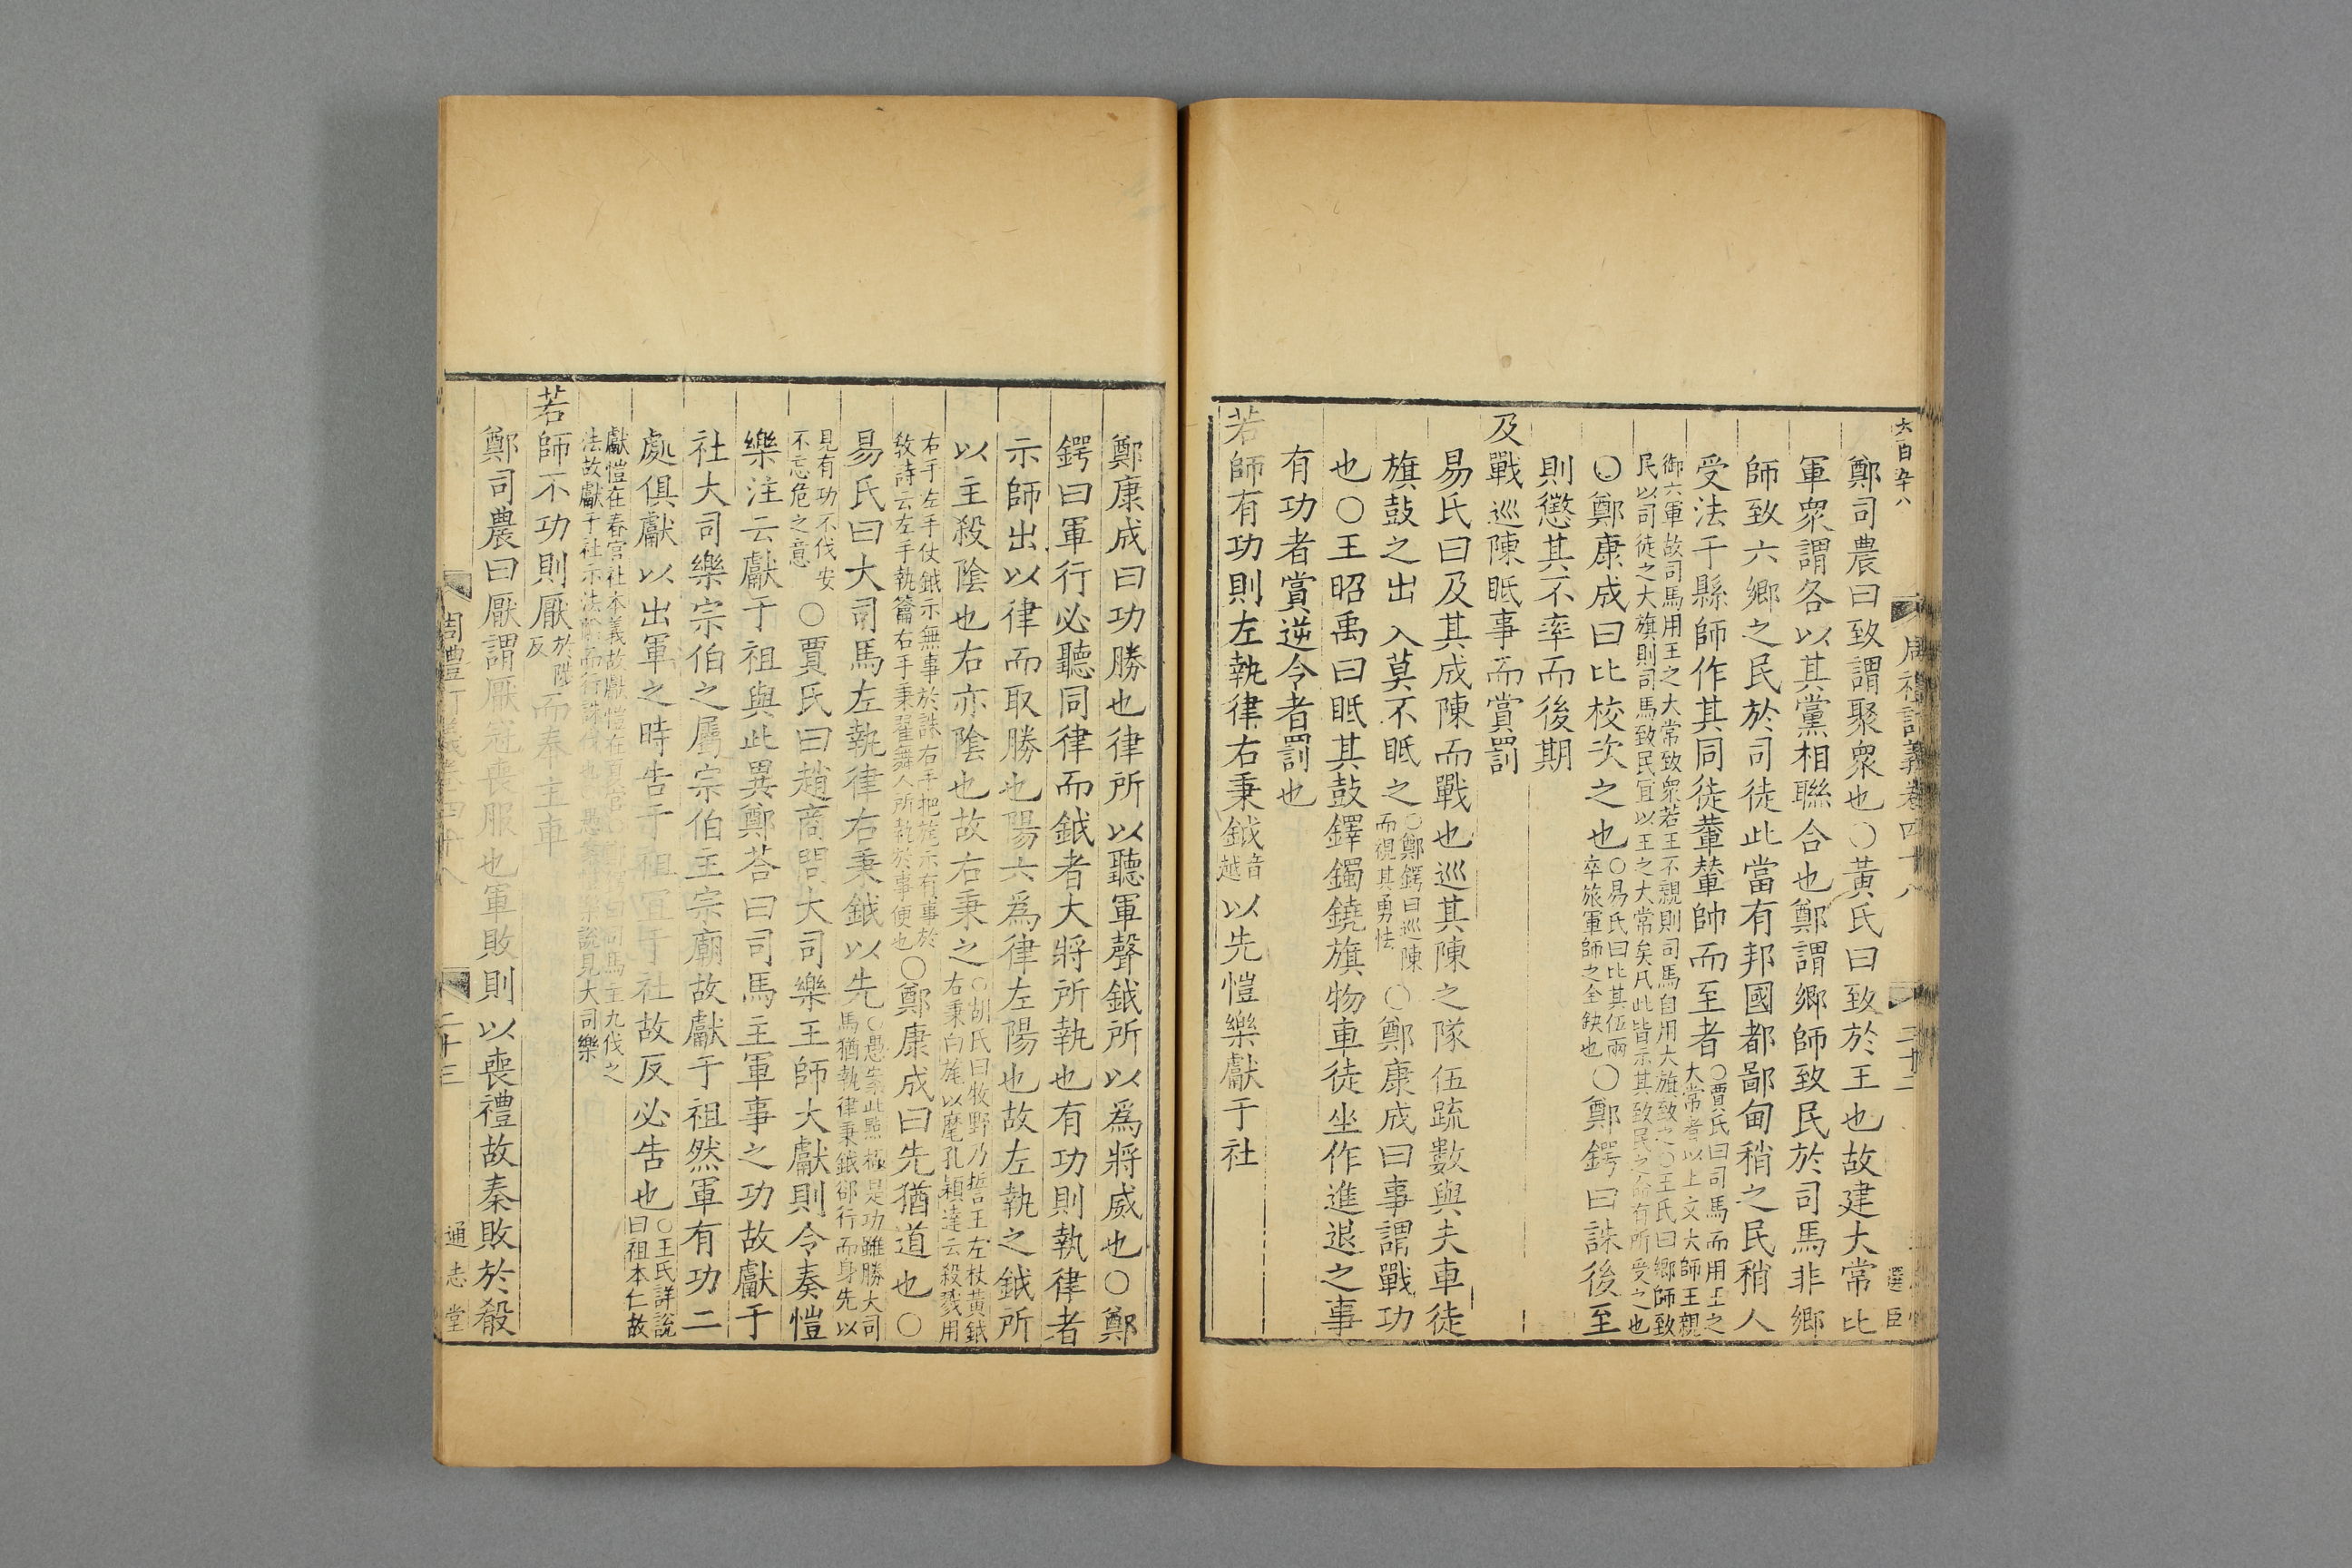 鄭司農曰致謂聚衆也○黃氏曰致於王也故建大常比
軍衆謂各以其黨相聯合也鄭謂鄉師致民於司馬非鄉
師致六鄉之民於司徒此當有邦國都鄙甸稍之民稍人
受法于縣師作其同徒輂輦帥而至者○賈氏曰司馬而用王之
大常者以上文大師王親
御六軍故司馬用王之大常致衆若王不親則司馬自用大旗致之○王氏曰鄉師致
民以司徒之大旗則司馬致民宜以王之大常矣凡此皆示其致民之命有所受之也
○鄭康成曰比校次之也○易氏曰比其伍兩
卒旅軍師之全缺也○鄭鍔曰誅後至
則懲其不率而後期
及戰巡陳眡事而賞罰
易氏曰及其成陳而戰也巡其陳之隊伍疏數與夫車徒
旗鼓之出入莫不眡之○鄭鍔曰巡陳
而視其勇怯○鄭康成曰事謂戰功
也○王昭禹曰眡其鼓鐸鐲鐃旗物車徒坐作進退之事
有功者賞逆令者罰也
若師有功則左執律右秉鉞音
越以先愷樂獻于社
鄭康成曰功勝也律所以聽軍聲鉞所以爲將威也○鄭
鍔曰軍行必聽同律而鉞者大將所執也有功則執律者
示師出以律而取勝也陽六爲律左陽也故左執之鉞所
以主殺陰也右亦陰也故右秉之○胡氏曰牧野乃誓王左杖黃鉞
右秉白旄以麾孔穎達云殺戮用
右手左手仗鉞示無事於誅右手把旄示有事於
敎詩云左手執籥右手秉翟舞人所執於事便也○鄭康成曰先猶道也○
易氏曰大司馬左執律右秉鉞以先○愚案此㸃極是功雖勝大司
馬猶執律秉鉞郤行而身先以
見有功不伐安
不忘危之意○賈氏曰趙商問大司樂王師大獻則令奏愷
樂注云獻于祖與此異鄭荅曰司馬主軍事之功故獻于
社大司樂宗伯之屬宗伯主宗廟故獻于祖然軍有功二
處俱獻以出軍之時告于祖宜于社故反必告也○王氏詳說
曰祖本仁故
獻愷在春官社本義故獻愷在夏官○鄭鍔曰司馬主九伐之
法故獻于社示法陰而行誅伐也○愚案愷樂說見大司樂
若師不功則厭於㳙
反而奉主車
鄭司農曰厭謂厭冠喪服也軍敗則以喪禮故秦敗於殽
六百卆八
周禮訂義卷四十八
二十二
周禮訂義卷四十八
二十三
通志堂